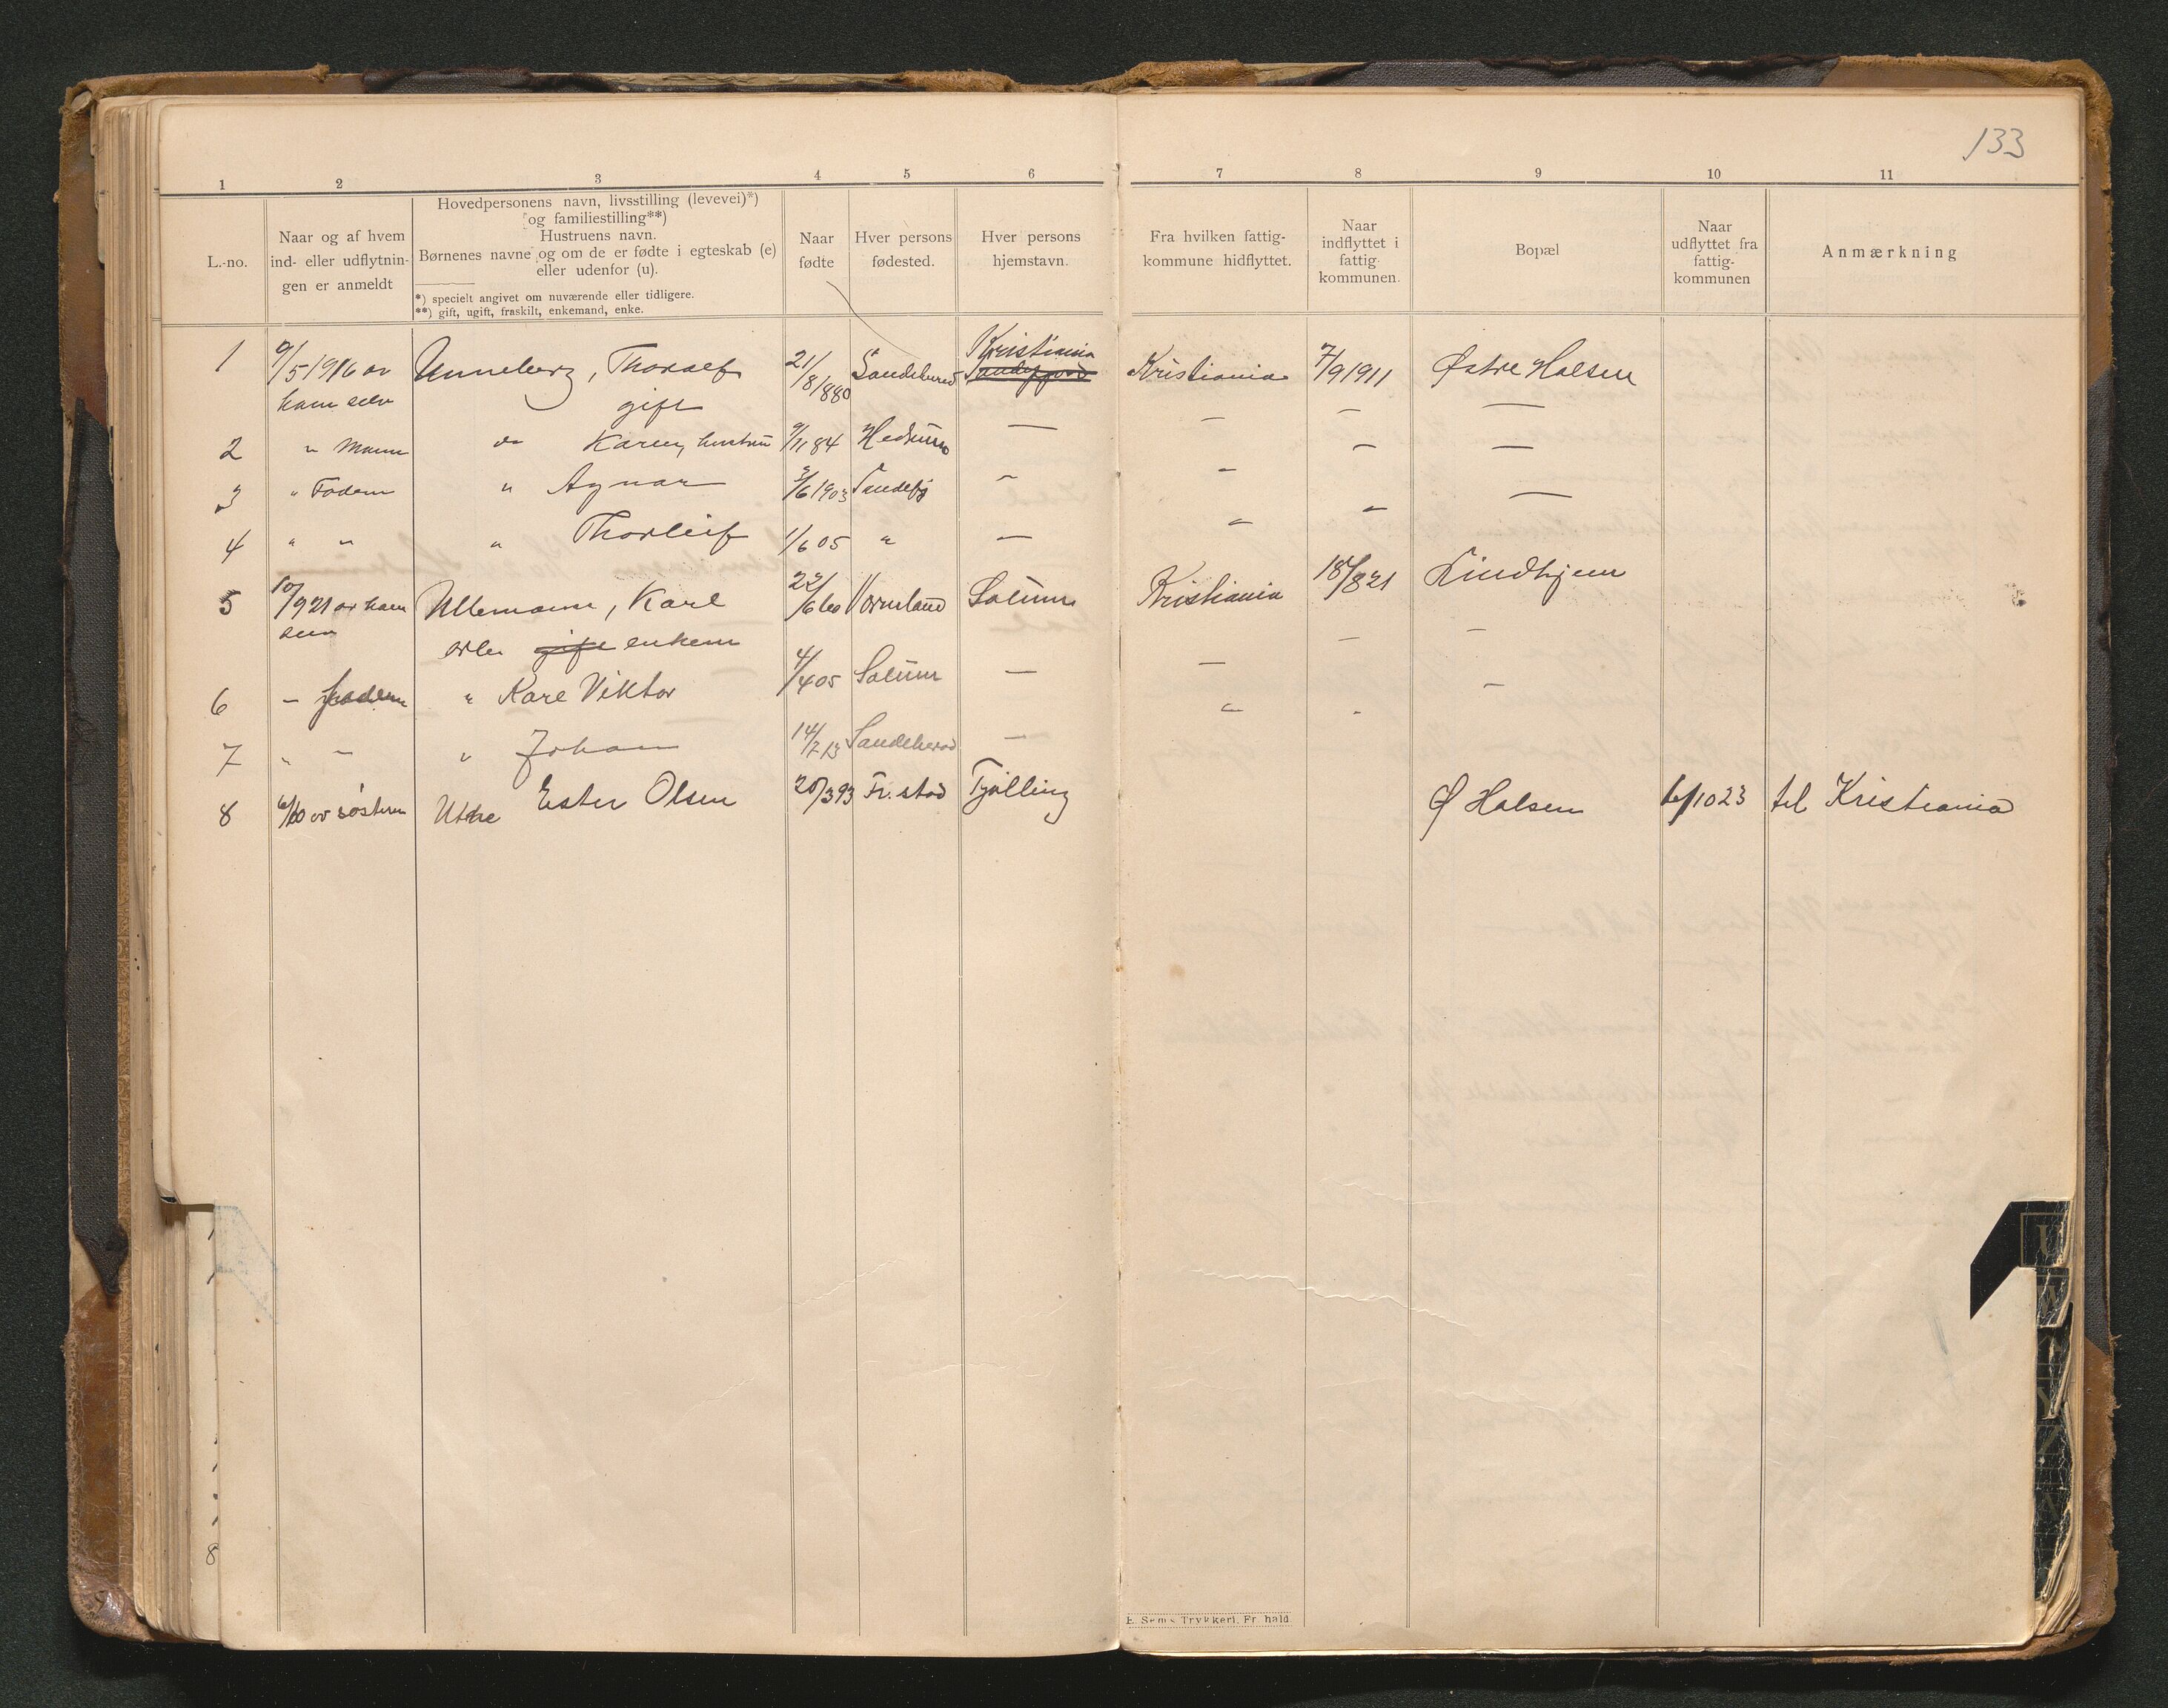 133
1 2 3 4 5 6 7 8 9 10 11
L.-no.
Naar og af hvem
ind- eller udflytnin-
gen er anmeldt
Hovedpersonens navn, livsstilling (levevei)*)
og familiestilling**)
Hustruens navn.
Børnenes navne og om de er fødte i egteskab (e)
eller udenfor (u).
*) specielt angivet om nuværende eller tidligere.
**) gift, ugift, fraskilt, enkemand, enke.
Naar
fødte
Hver persons
fødested.
Hver persons
hjemstavn.
Fra hvilken fattig-
kommune hidflyttet.
Naar
indflyttet i
fattig
kommunen.
Bopæl
Naar
udflyttet fra
fattig-
kommunen
Anmærkning
Kristiania
1 9/5 1916 av Unneberg, Thoralf 21/8/880 Sandeherred Sandefjord Kristiania 7/9 1911 Østre Halsen
ham selv gift
2 " Mann do Karen, hustru 9/11 84 Hedrum — — — —
3 " Faderen " Agnar 3/6 1903 Sandefj — — — —
4 " " " Thorleif 1/6 05 " — — — —
5 10/9 21 av ham Ullemann, Karl 22/6 60 Vormland Solum Kristiania 18/8 21 Lindhjem
selv arb. gift enkem
6 — faderen " Karl Viktor 4/4 05 Solum — — — —
7 " — " Johan 14/7 13 Sandeherred — — - —
8 6/10 av søsteren Utne Ester Olsen 20/3 93 Fr.stad Tjølling Ø Halsen 6/10 23 til Kristiania
E. Sems Trykkeri, Fr.hald.
U
W
Y
Z
8